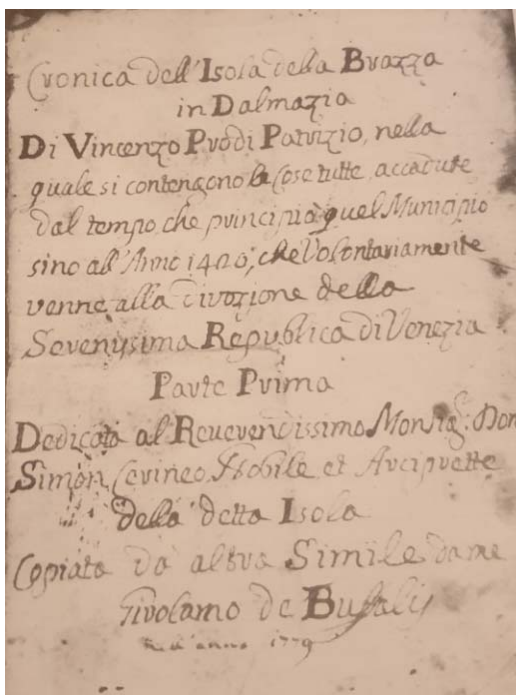 Cronica dell'Isola della Brazza
in Dalmazia
Di Vincenzo Prodi Patrizio, nella
quale si contengono le Cose tutte, accadute
dal tempo, che principiò quel Municipio
sino all'Anno 1420, che Volontariamente
venne alla divozione della
Serenissima Republica di Venezia
Parte Prima
Dedicata al Reverendissimo Monsig.r Don
Simon Cerineo Nobile, et Arciprette
della detta Isola
Copiata da altra Simile da me
Girolamo de Bufalis
nell'anno 1779